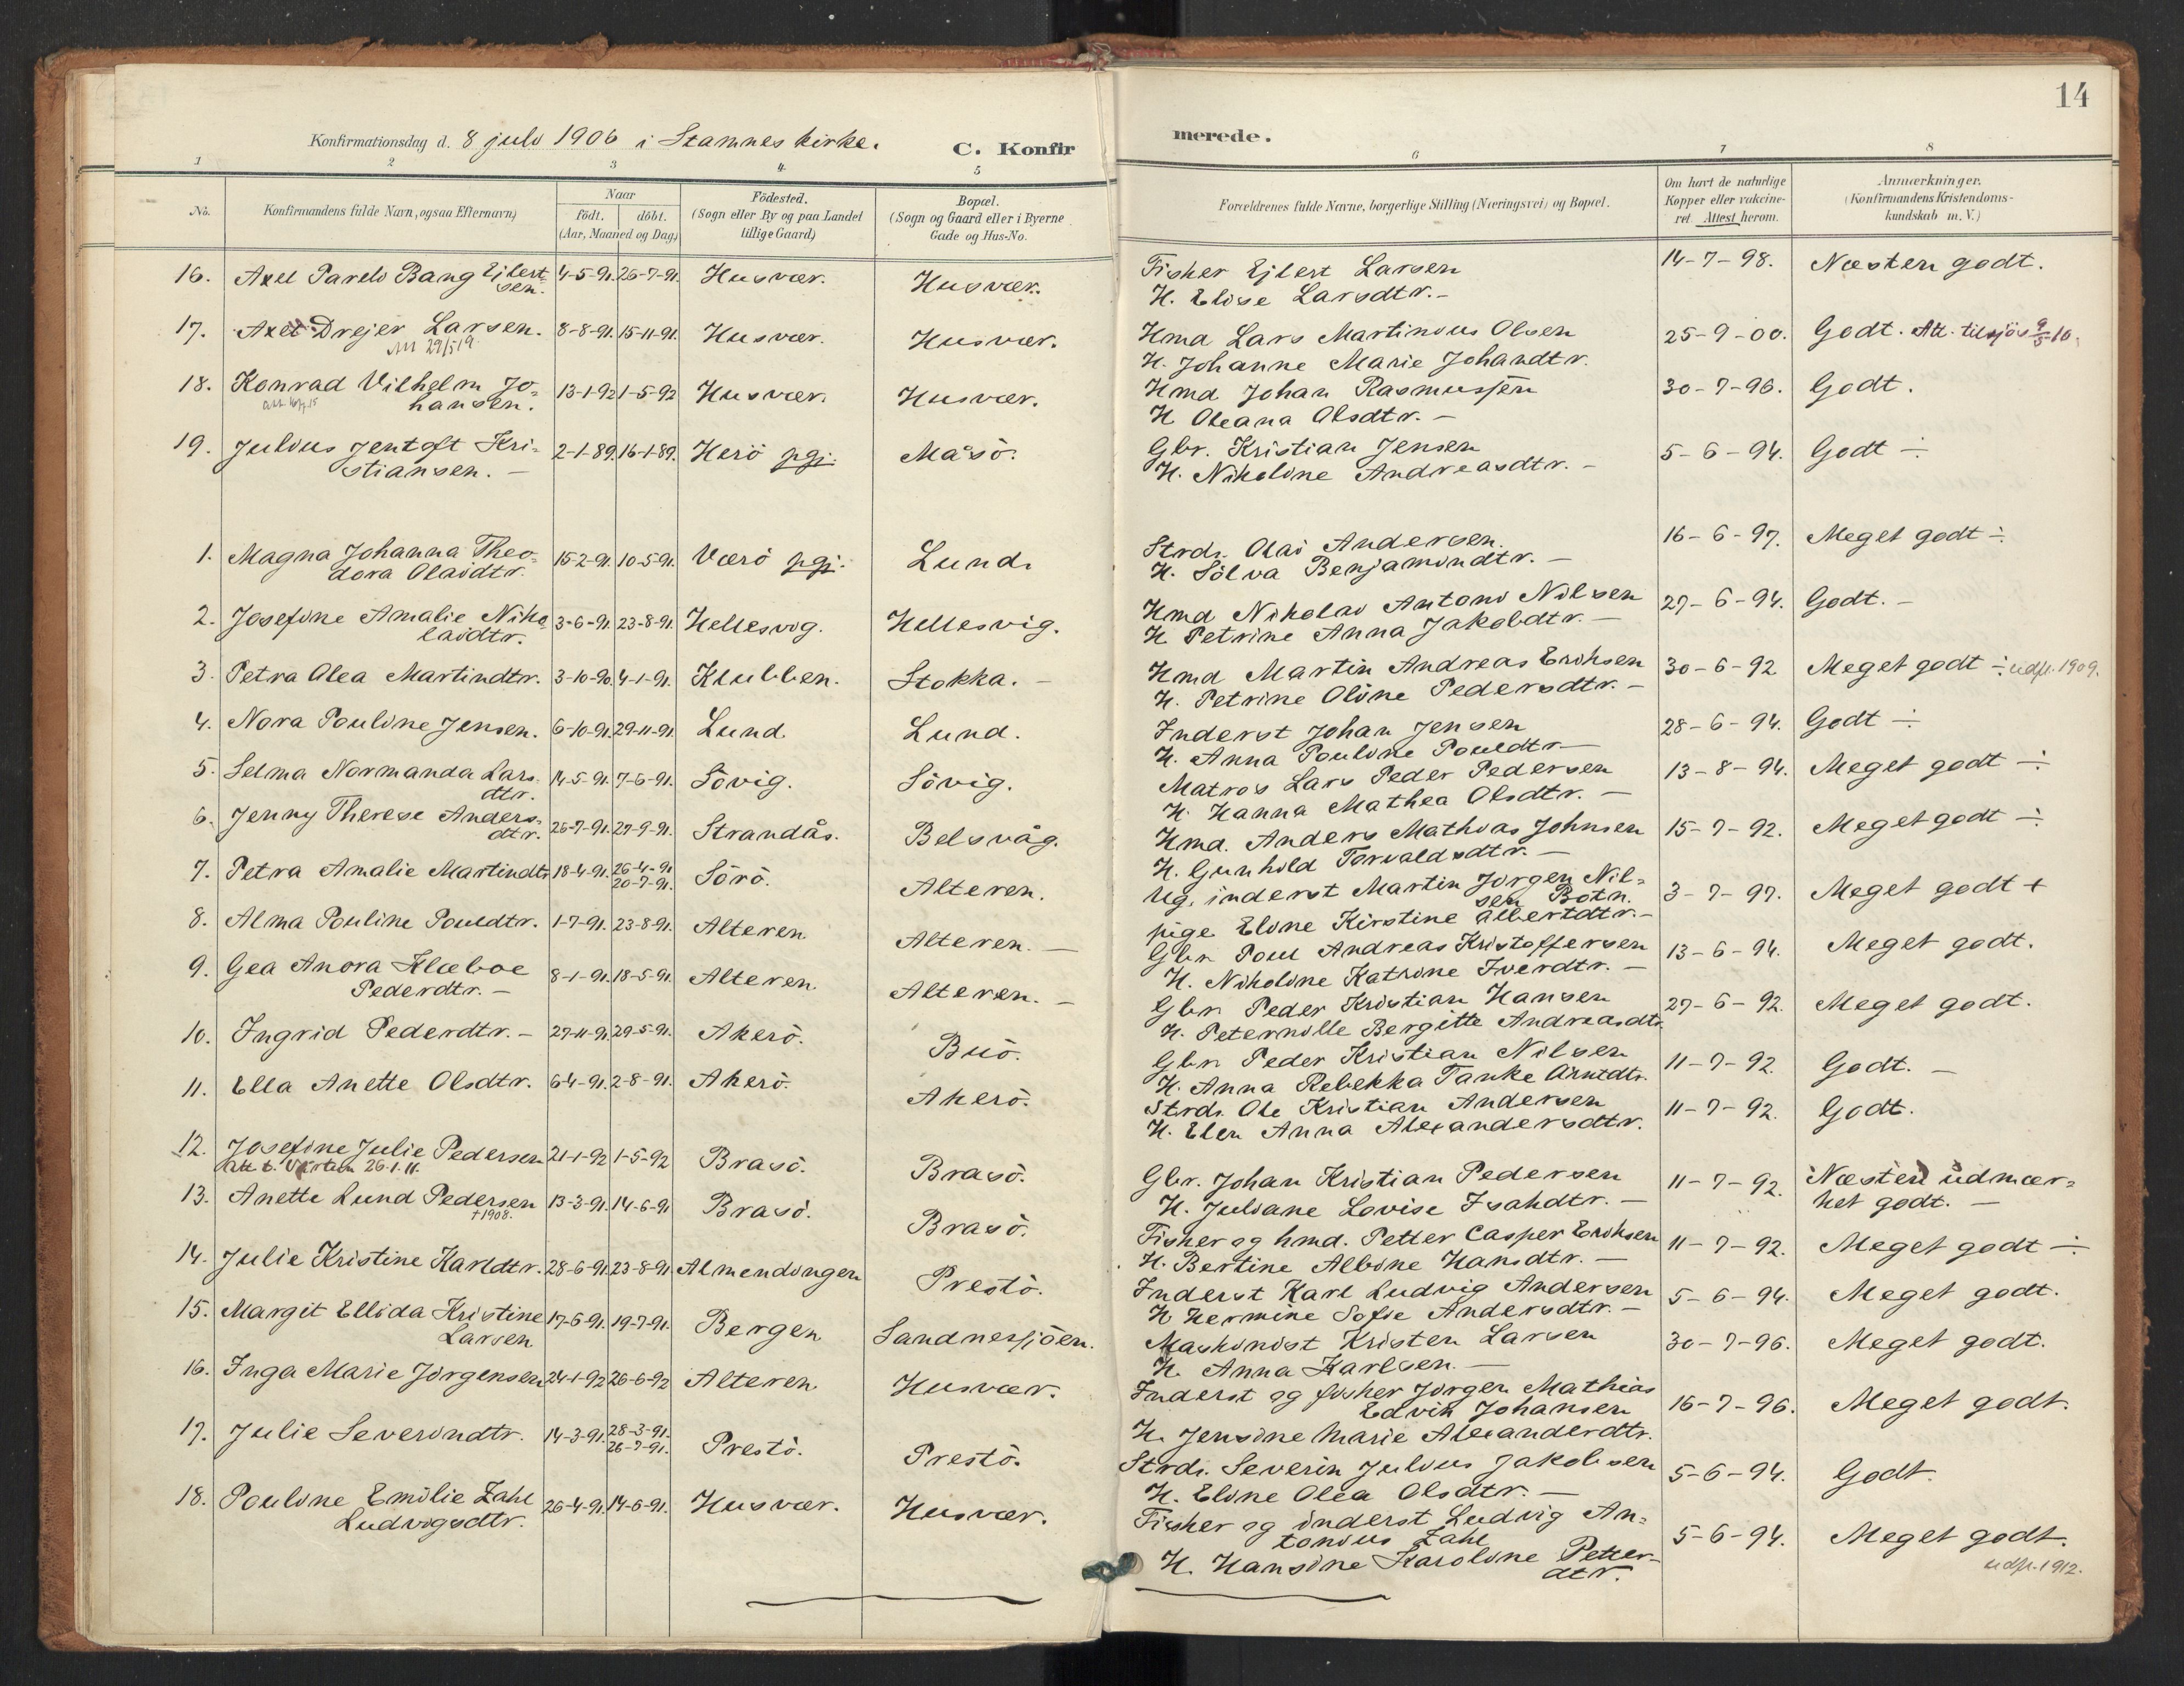 14
Konfirmationsdag d. 8 juli 1906 i Stamnes kirke.
C. Konfir
merede.
1 2 3 4 5 6 7 8
No.
Konfirmandens fulde Navn, ogsaa Efternavn)
Naar
födt. döbt.
(Aar, Maaned og Dag)
Födested.
(Sogn eller By og paa Landet
tillige Gaard)
Bopæl.
(Sogn og Gaard eller i Byerne
Gade og Hus-No.
Forældrenes fulde Navne, borgerlige Stilling (Næringsvei) og Bopæl.
Om havt de naturlige
Kopper eller vakcine-
ret. Attest herom.
Anmærkninger.
(Konfirmandens Kristendoms-
kundskab m. V.)
16. Axel Parelo Bang Ejlert- 4-5-91. 26-7-91. Husvær. Husvær. Fisker Ejlert Larsen 14-7-98. Næsten godt.
sen. H. Elise Larsdtr. -
17. Axel Drejer Larsen. 8-8-91. 15-11-91. Husvær. Husvær. Hmd Lars Martinius Olsen 25-9-00. Godt. Att. tilsjös 9/5-10.
Att 29/5 19 H. Johanne Marie Johandtr.
18. Konrad Vilhelm Jo= 13-1-92 1-5-92 Husvær. Husvær. Hmd Johan Rasmussen 30-7-96. Godt.
hansen. H Oleana Olsdtr. -
19. Julius Jentoft Kri- 2-1-89. 16-1-89. Herö pgj. Måsö. Gbr. Kristian Jensen 5-6-94. Godt ÷
stiansen. - H. Nikoline Andreasdtr. -
1. Magna Johanna Theo= 15-2-91. 10-5-91. Værö pgj. Lund. Strds. Olai Andersen. 16-6-97. Meget godt ÷
dora Olaidtr. H. Sölva Benjamindtr. -
2. Josefine Amalie Niko= 3-6-91. 23-8-91. Hellesvig. Hellesvig. Hmd Nikolai Antoni Nilsen 27-6-94. Godt. -
laidtr. H Petrine Anna Jakobdtr. -
3. Petra Olea Martindtr. 3-10-90. 4-1-91. Klubben. Stokka. - Hmd Martin Andreas Eriksen 30-6-92 Meget godt ÷ udfl. 1909.
H. Petrine Oline Pedersdtr. -
4. Nora Pouline Jensen. 6-10-91. 29-11-91. Lund. Lund. Inderst Johan Jensen 28-6-94. Godt ÷
H. Anna Pouline Pouldtr -
5. Selma Normanda Lars- 14-5-91. 7-6-91. Sövig. Sövig. Matros Lars Peder Pedersen 13-8-94. Meget godt ÷
dtr. H. Hanna Mathea Olsdtr. -
6. Jenny Therese Anders- 26-7-91. 27-9-91. Strandås. Belsvåg. Hmd. Anders Mathias Johnsen 15-7-92. Meget godt ÷
dtr. H. Gunhild Torvaldsdtr. -
7. Petra Amalie Martindtr 18-4-91. 26-4-91 Sörö. Alteren. Ug. inderst Martin Jörgen Nil= 3-7-97. Meget godt +
20-7-91. sen Botn.
pige Eline Kirstine Albertdtr. -
8. Alma Pouline Pouldtr. 1-7-91. 23-8-91. Alteren Alteren. - Gbr. Poul Andreas Kristoffersen 13-6-94. Meget godt.
H. Nikoline Katrine Iverdtr. -
9. Gea Anora Klæboe 8-1-91. 18-5-91. Alteren Alteren. - Gbr. Peder Kristian Hansen 27-6-92. Meget godt.
Pederdtr. - H. Peternille Bergitte Andreasdtr.
10. Ingrid Pederdtr. - 27-11-91. 29-5-91. Akerö. Buö. Gbr. Peder Kristian Nilsen 11-7-92. Godt. -
H. Anna Rebekka Tanke Arntdtr.
11. Ella Anette Olsdtr. 6-4-91. 2-8-91. Akerö. Akerö. Strds. Ole Kristian Andersen 11-7-92. Godt.
H. Elen Anna Alexandersdtr.
12. Josefine Julie Pedersen 21-1-92 1-5-92 Brasö. Brasö. Gbr. Johan Kristian Pedersen 11-7-92. Næsten udmær=
26.1.11. H. Juliane Lovise Isakdtr. - ket godt. -
13. Anette Lund Pedersen 13-3-91. 14-6-91 Brasö. Brasö. Fisker og hmd. Petter Casper Eriksen 11-7-92. Meget godt ÷
†1908. H. Bertine Albine Hansdtr. -
14. Julie Kristine Karldtr. 28-6-91. 23-8-91 Almendingen Prestö. Inderst Karl Ludvig Andersen 5-6-94. Meget godt.
H Hermine Sofie Andersdtr. -
15. Margit Ellida Kristine 17-6-91. 19-7-91. Bergen Sandnessjöen. Maskinist Kristen Larsen 30-7-96. Meget godt.
Larsen H. Anna Karlsen. -
16. Inga Marie Jörgensen 24-1-92 26-6-92 Alteren Husvær. Inderst og fisker Jörgen Mathias 16-7-96. Meget godt.
Edvin Johansen
H. Jensine Marie Alexanderdtr.
17. Julie Severindtr. 14-3-91. 28-3-91. Prestö. Prestö. Strds. Severin Julius Jakobsen 5-6-94. Godt.
26-7-91. H. Eline Olea Olsdtr. -
18. Pouline Emilie Zahl 26-4-91. 14-6-91. Husvær. Husvær. Fisker og inderst Ludvig An= 5-6-94. Meget godt.
Ludvigsdtr. tonius Zahl
H. Hansine Karoline Petter- udfl. 1912.
dtr.